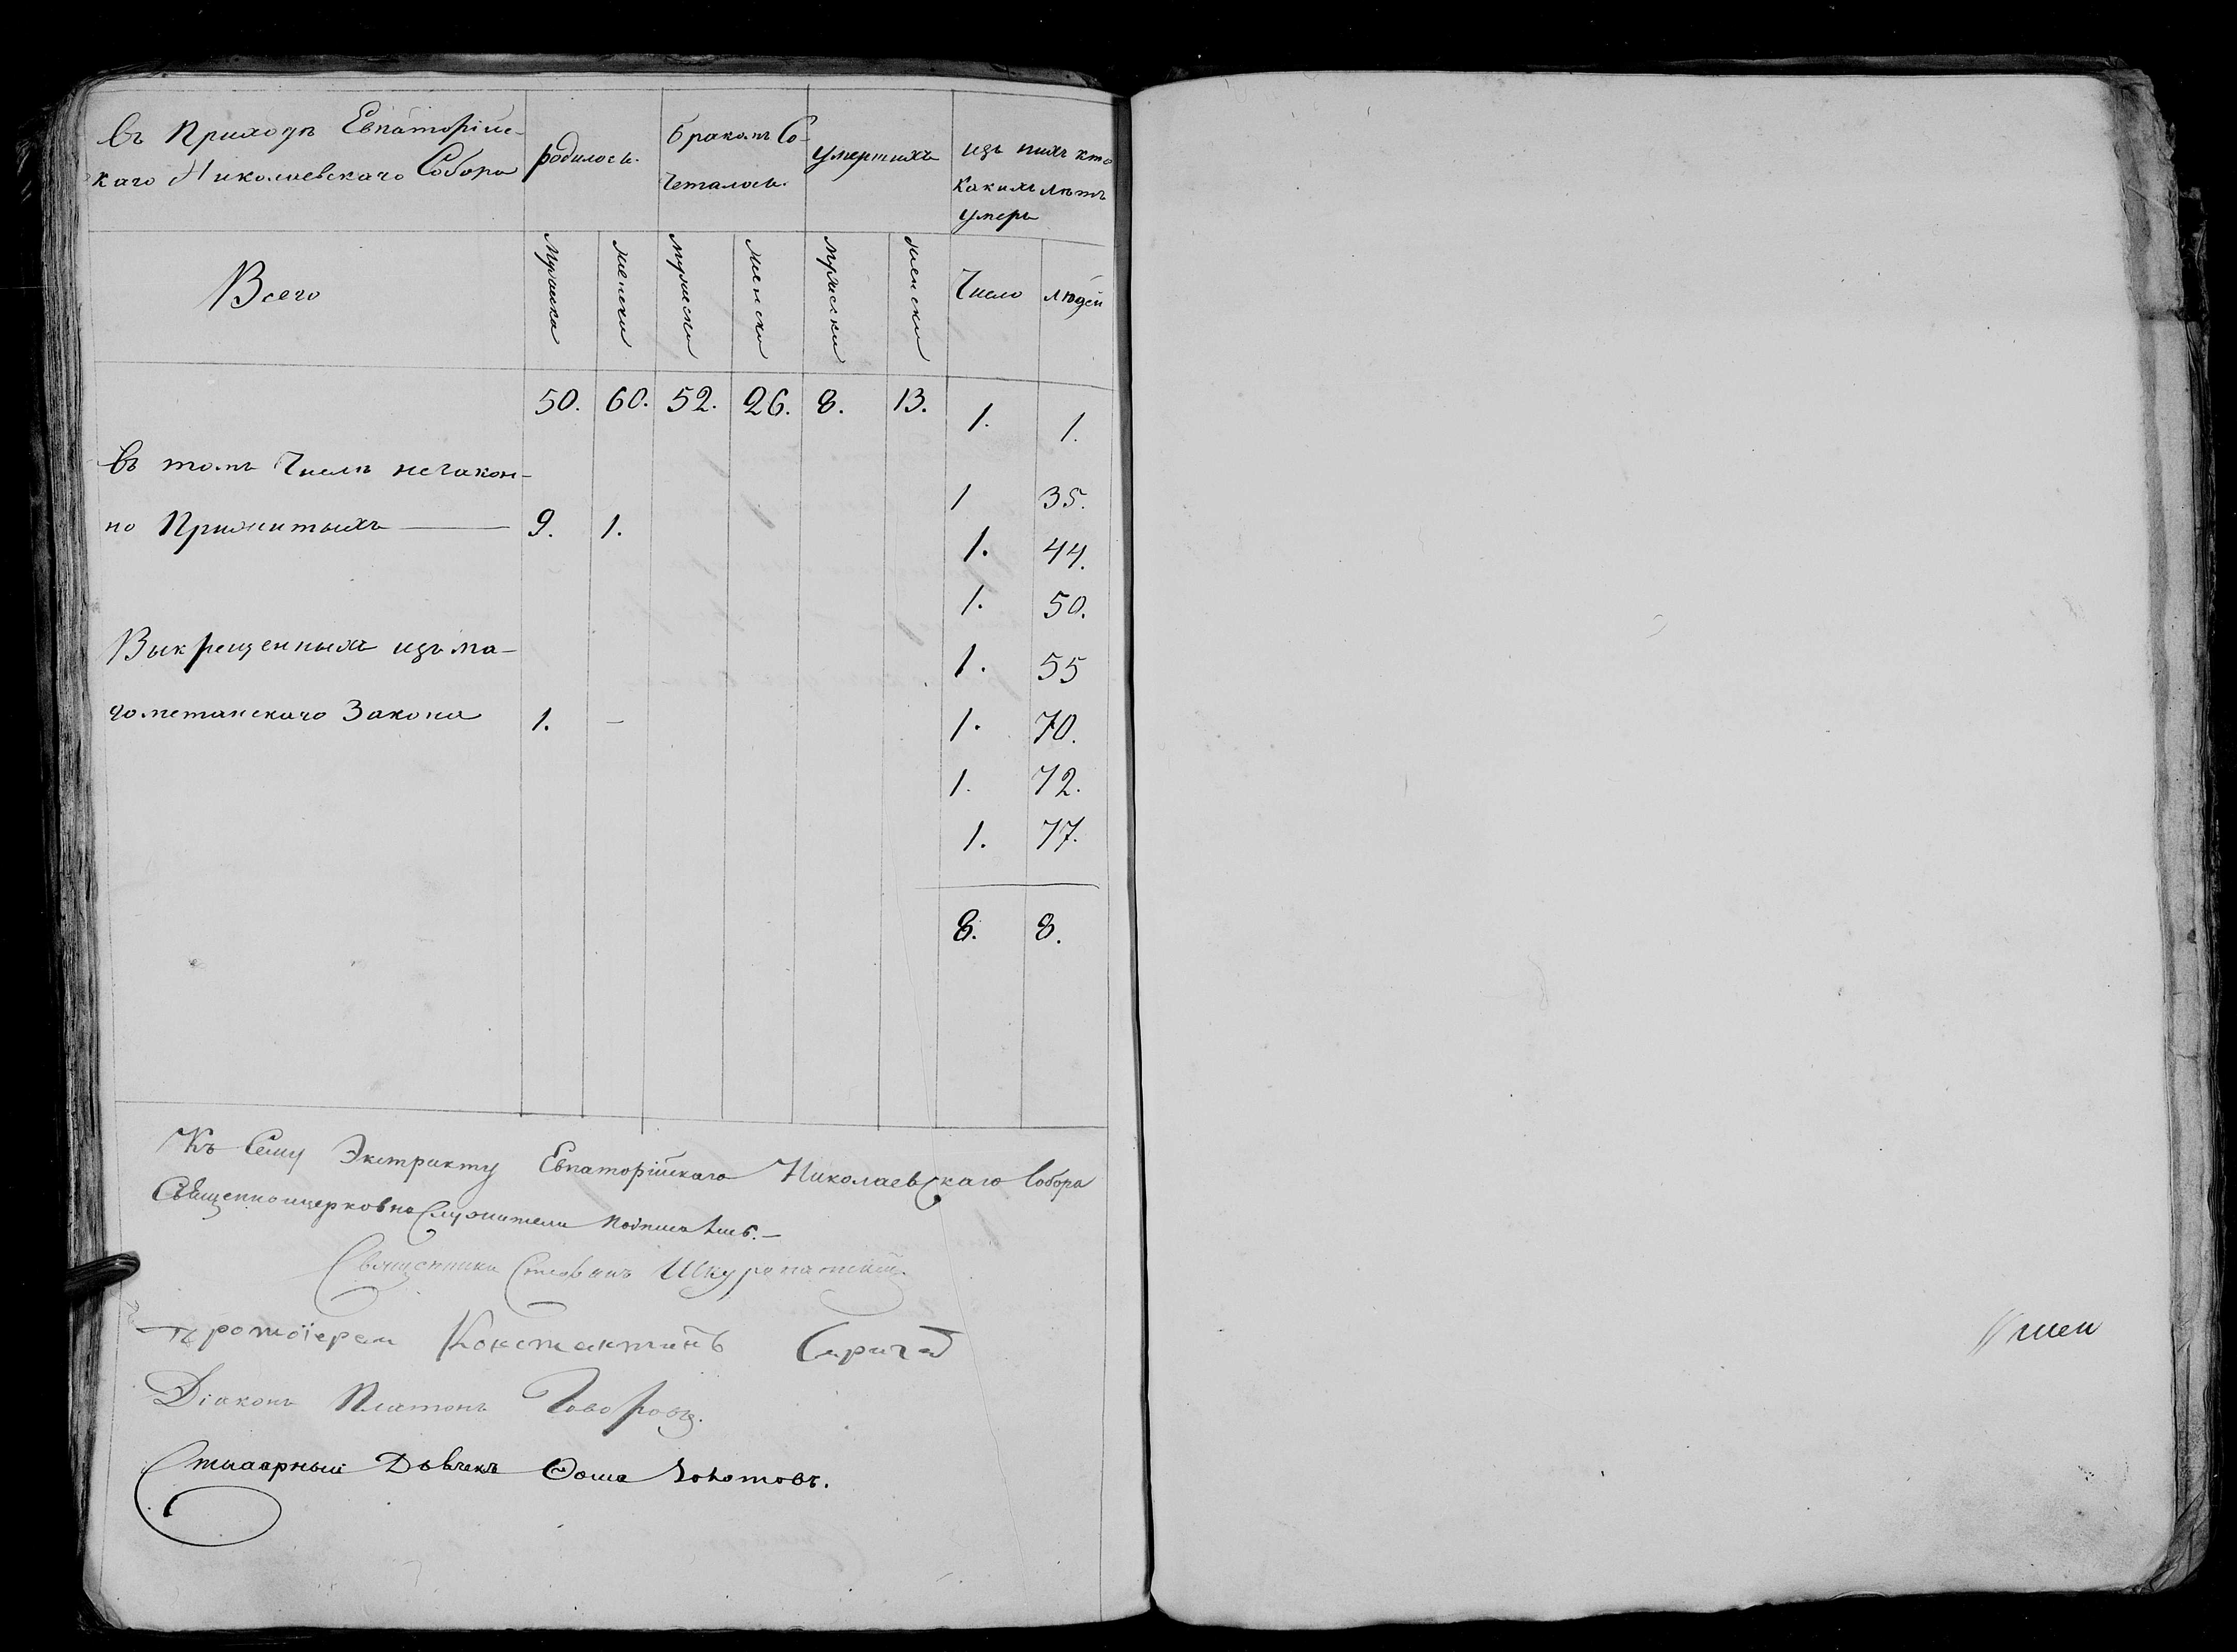 Въ Приходѣ Евпаторійс-
каго Николаевскаго Собора
родилось.
бракомъ Со-
четалось.
умершихъ
изъ нихъ кто
какихъ лѣтъ
умеръ
Всего
мужеска
женски
мужески
женски
мужески
женски
Число
людей
50. 60. 52. 26. 8. 13. 1. 1.
въ томъ Числѣ незакон-
1 35.
но Прижитыхъ — 9. 1.
1. 44.
1. 50.
Выкрещенныхъ изъ ма-
1. 55
гометанскаго Закона 1. —
1. 70.
1. 72.
1. 77.
8. 8.
Къ Сему Экстракту Евпаторійскаго Николаевскаго Собора
Священноицерковнослужители подписались.—
Священникъ
Протоіерей Константинъ
Діаконъ Платонъ Говоровъ.